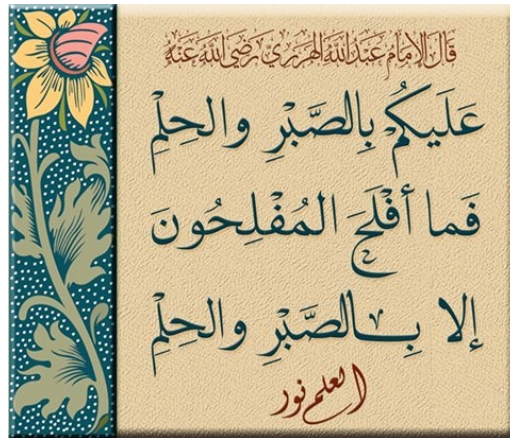 قَالَ الإِمَامُ عَبْدُ اللهِ الهَرَرِي رَضِيَ اللهُ عَنْهُ
عَلَيكُمْ بِالصَّبْرِ والحِلْمِ
فَما أفْلَحَ المُفْلِحُونَ
إلا بِــالصَّبْرِ والحِلْمِ
العلم نور